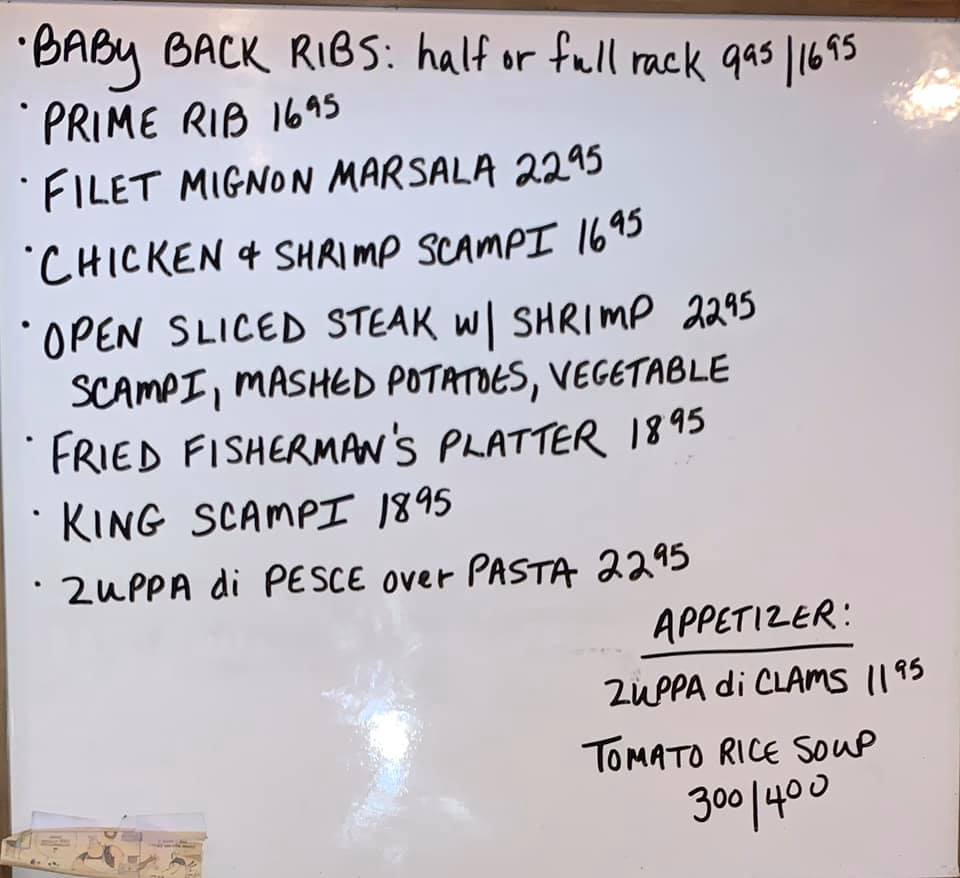 ·BABY BACK RIBS: half or full rack 995/1695
· PRIME RIB 1695
· FILET MIGNON MARSALA 2295
· CHICKEN & SHRIMP SCAMPI 1695
· OPEN SLICED STEAK w/ SHRIMP 2295
SCAMPI, MASHED POTATOES, VEGETABLE
· FRIED FISHERMAN'S PLATTER 1895
· KING SCAMPI 1895
· ZUPPA di PESCE over PASTA 2295
APPETIZER:
ZUPPA di CLAMS 1195
TOMATO RICE SOUP
300/400